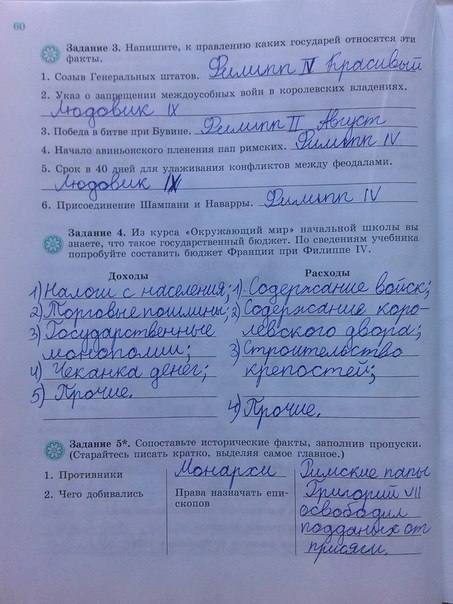 60
Задание 3. Напишите, к правлению каких государей относятся эти
факты.
1. Созыв Генеральных штатов. Филипп IV Красивый
2. Указ о запрещении междоусобных войн в королевских владениях.
Людовик IX
3. Победа в битве при Бувине. Филипп II Август
4. Начало авиньонского пленения пап римских. Филипп IV
5. Срок в 40 дней для улаживания конфликтов между феодалами.
Людовик IX
6. Присоединение Шампани и Наварры. Филипп IV
Задание 4. Из курса «Окружающий мир» начальной школы вы
знаете, что такое государственный бюджет. По сведениям учебника
попробуйте составить бюджет Франции при Филиппе IV.
Доходы Расходы
1) Налоги с населения; 1) Содержание войск;
2) Торговые пошлины; 2) Содержание коро-
3) Государственные левского двора;
монополии; 3) Строительство
4) Чеканка денег; крепостей;
5) Прочие.
4) Прочие.
Задание 5*. Сопоставьте исторические факты, заполнив пропуски.
(Старайтесь писать кратко, выделяя самое главное.)
1. Противники Монархи Римские папы
2. Чего добивались Права назначать епи- Григорий VII
скопов освободил
подданых от
присяги.